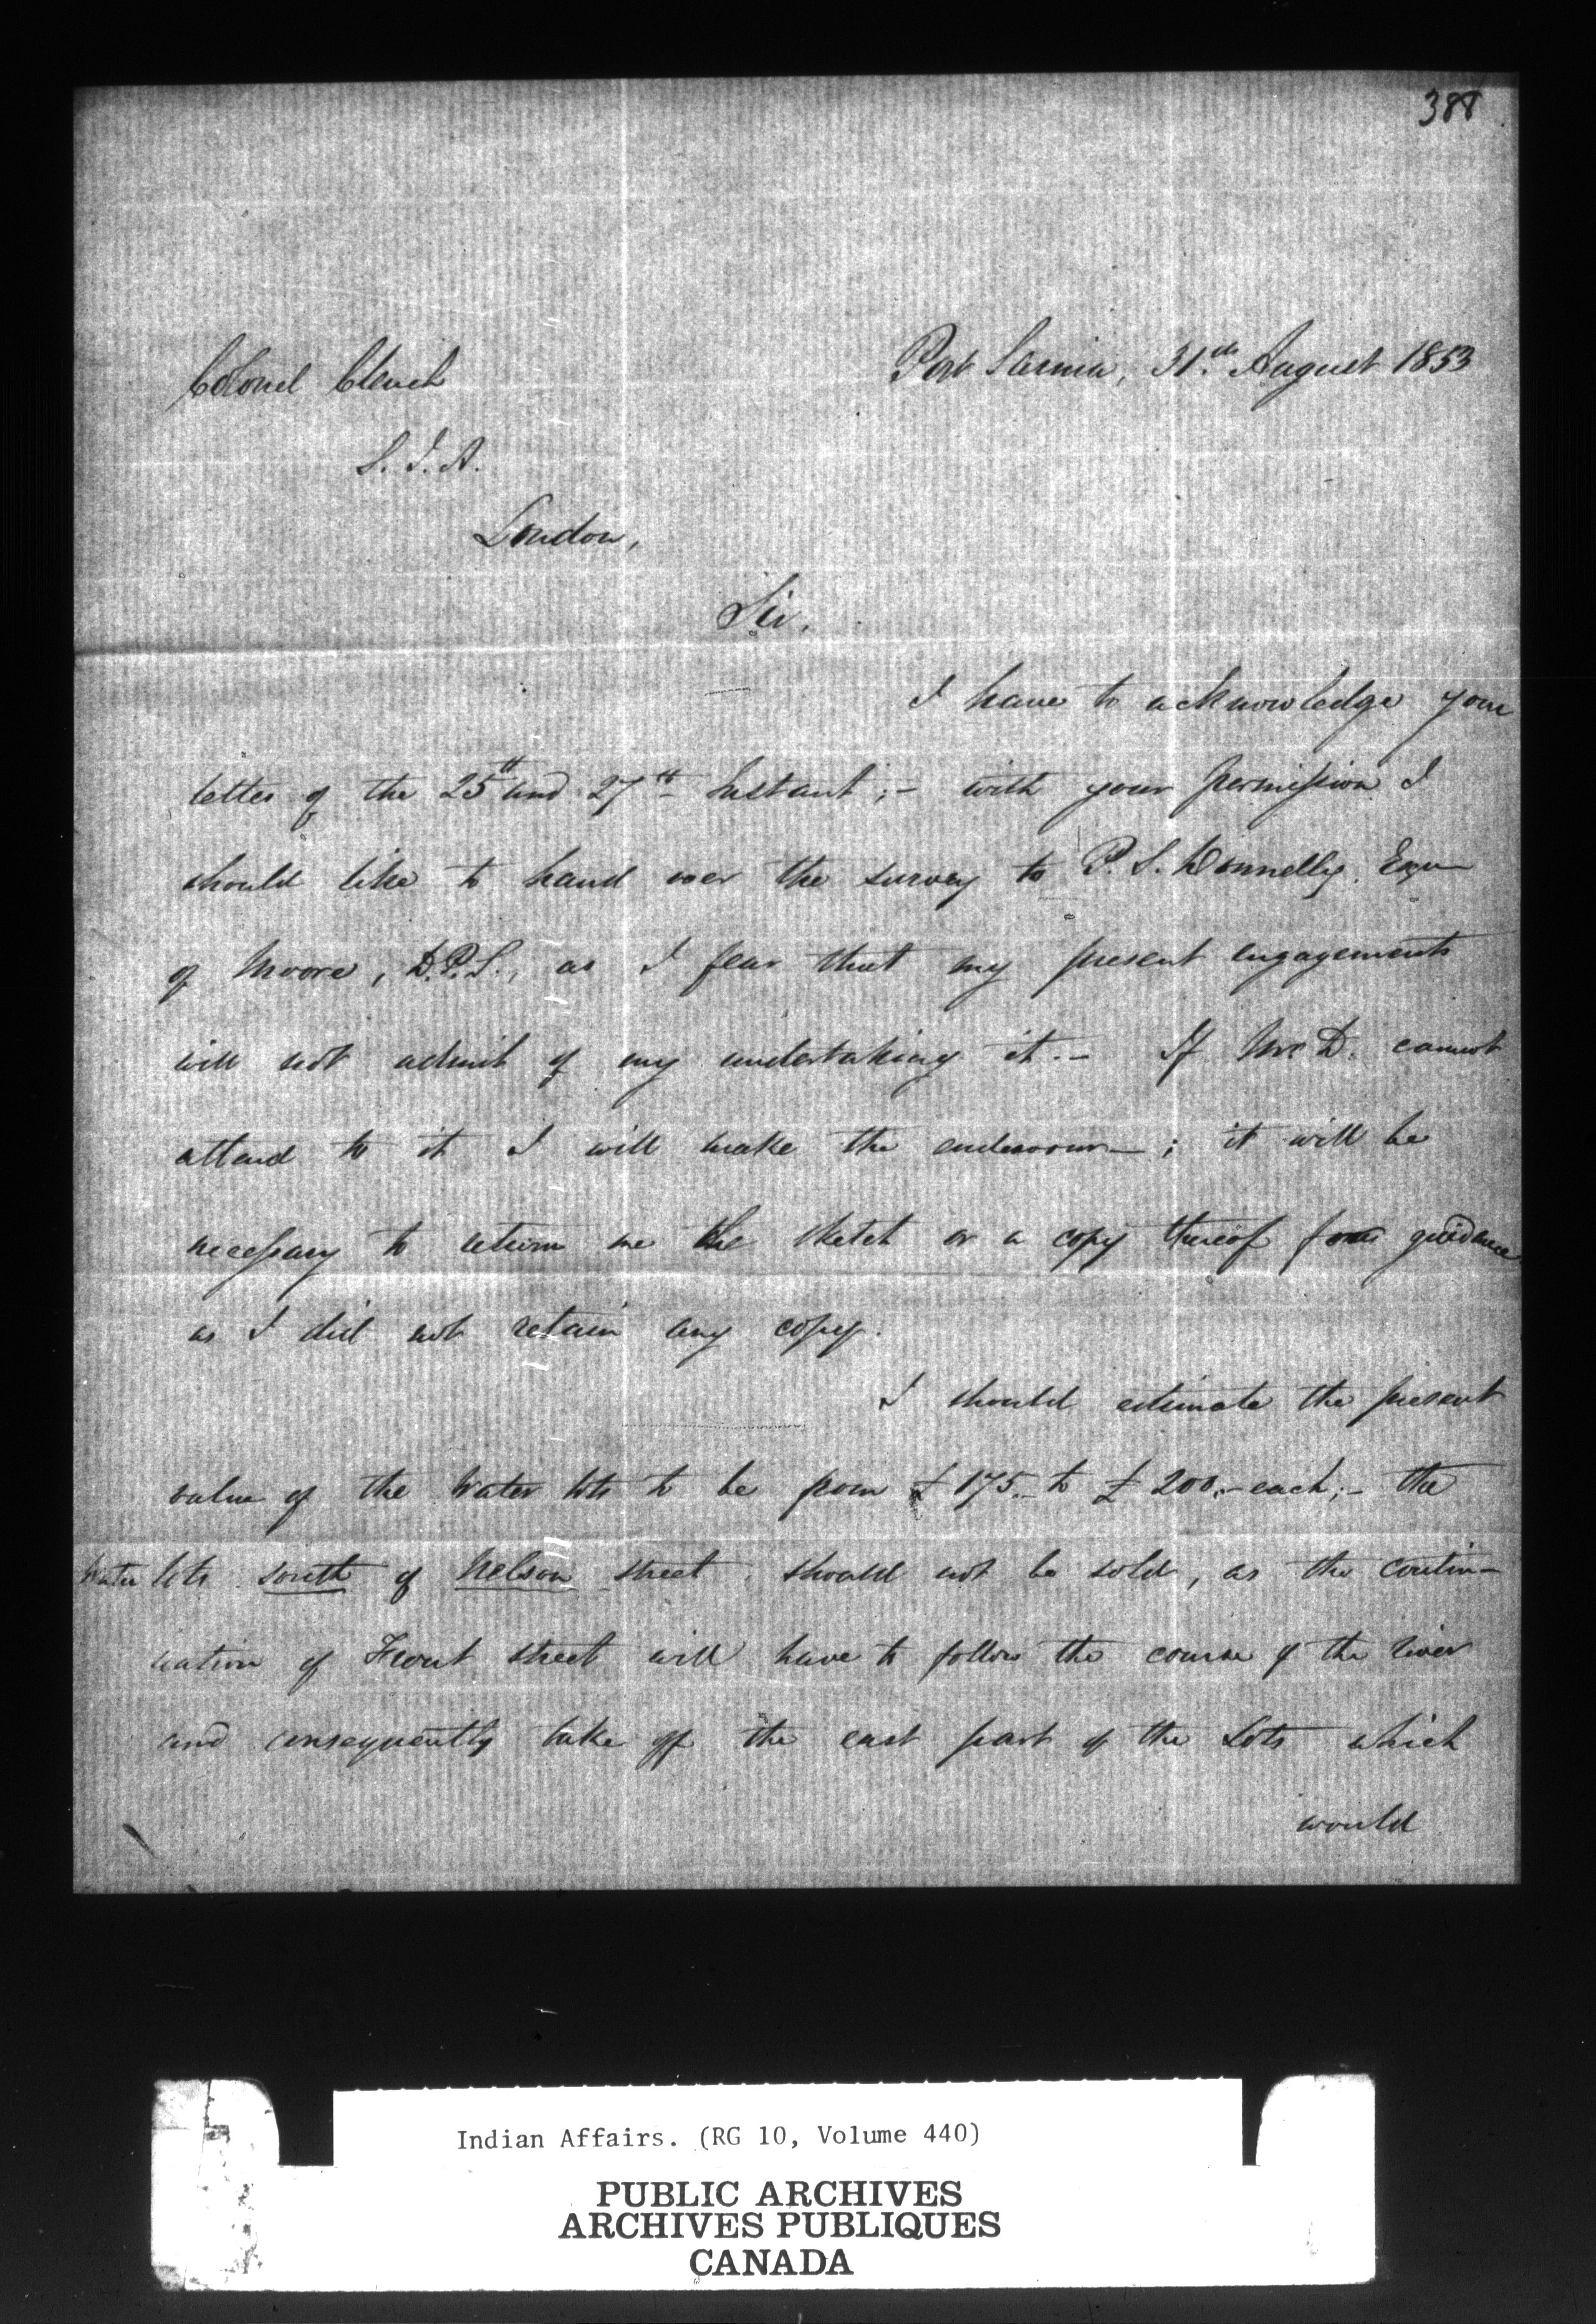 388
Port Sarnia, 31.th August 1853
Colonel Clench
S. I. A.
London,
Sir,
I have to acknowledge your
letter of the 25th and 27th Instant; - with your permission I
should like to hand over the survey to P. S. Donnelly Esqr
of Moore, D.P.S., as I fear that my present engagements
will not admit of my undertaking it. - If Mr D. cannot
attend to it I will make the endeavour - ; it will be
necessary to return me the sketch or a copy thereof for guidance
as I did not retain any copy.
I should estimate the present
value of the Water lots to be from £175.- to £200.- each; - the
Water lots south of Nelson street should not be sold, as the contin-
uation of Front street will have to follow the course of the river
and consequently take off the east part of the Lots which
would
Indian Affairs. (RG 10, Volume 440)
PUBLIC ARCHIVES
ARCHIVES PUBLIQUES
CANADA